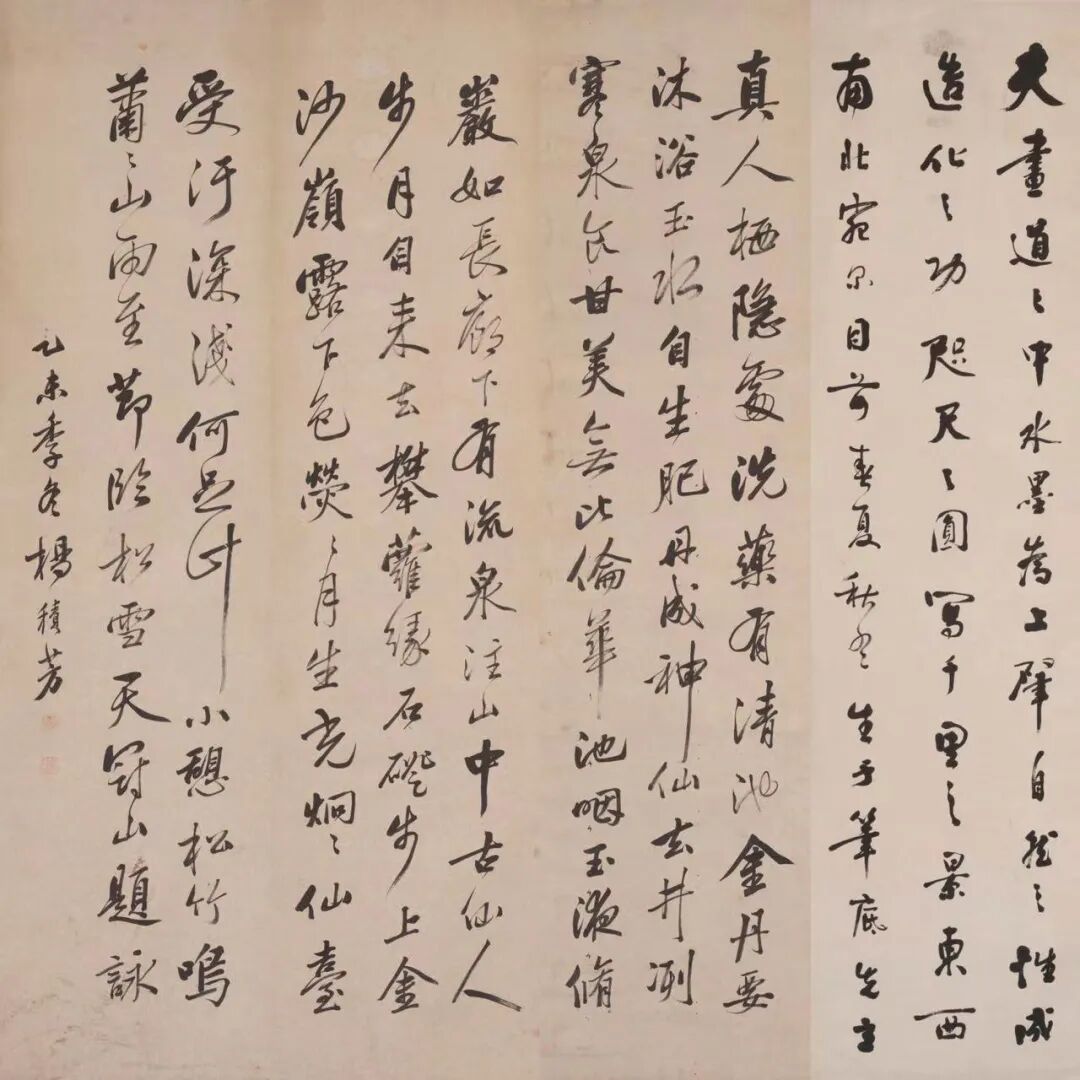 夫畫道之中水墨為上肇自然之性成
造化之功咫尺之圓寫千里之景東西
南北宛尔目前春夏秋冬生于筆底先立
真人栖隐處洗藥有清池金丹要
沐浴玉水自生肥丹成神仙去井冽
寒泉食甘美無比倫華池咽玉液脩
巖如長廊下有流泉注山中古仙人
步月自来去攀蘿緣石磴步上金
沙嶺露下色熒〻月生光炯〻仙臺
受汙深淺何足計小憩松竹鳴
蕭〻山雨至節臨松雪天冠山題詠
乙未季冬楊積芳